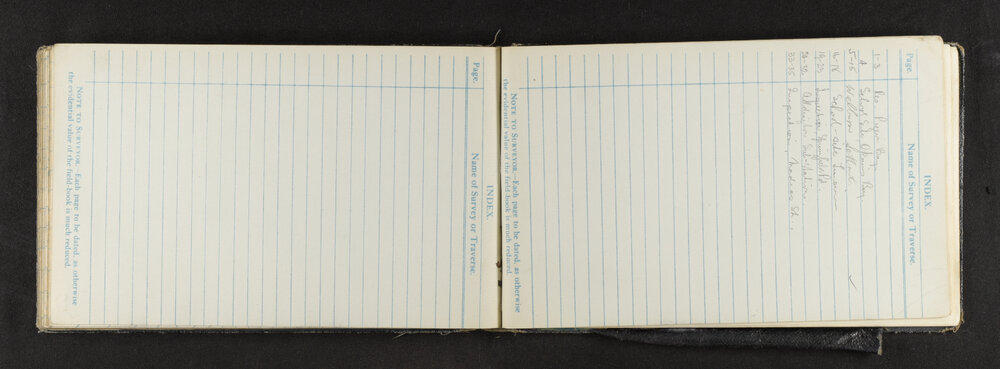 INDEX.
Page. Name of Survey or Traverse.
1-3 Res Pigeon Bay.
4 School Site Okains Bay.
5-15 Wellman Settlmt.
16-18 School-site
19-23 Springfield.
33-35 Inspection, Madras St.,
NOTE TO SURVEYOR.—Each page to be dated, as otherwise
the evidential value of the field-book is much reduced.
INDEX.
Page. Name of Survey or Traverse.
NOTE TO SURVEYOR.—Each page to be dated, as otherwise
the evidential value of the field-book is much reduced.